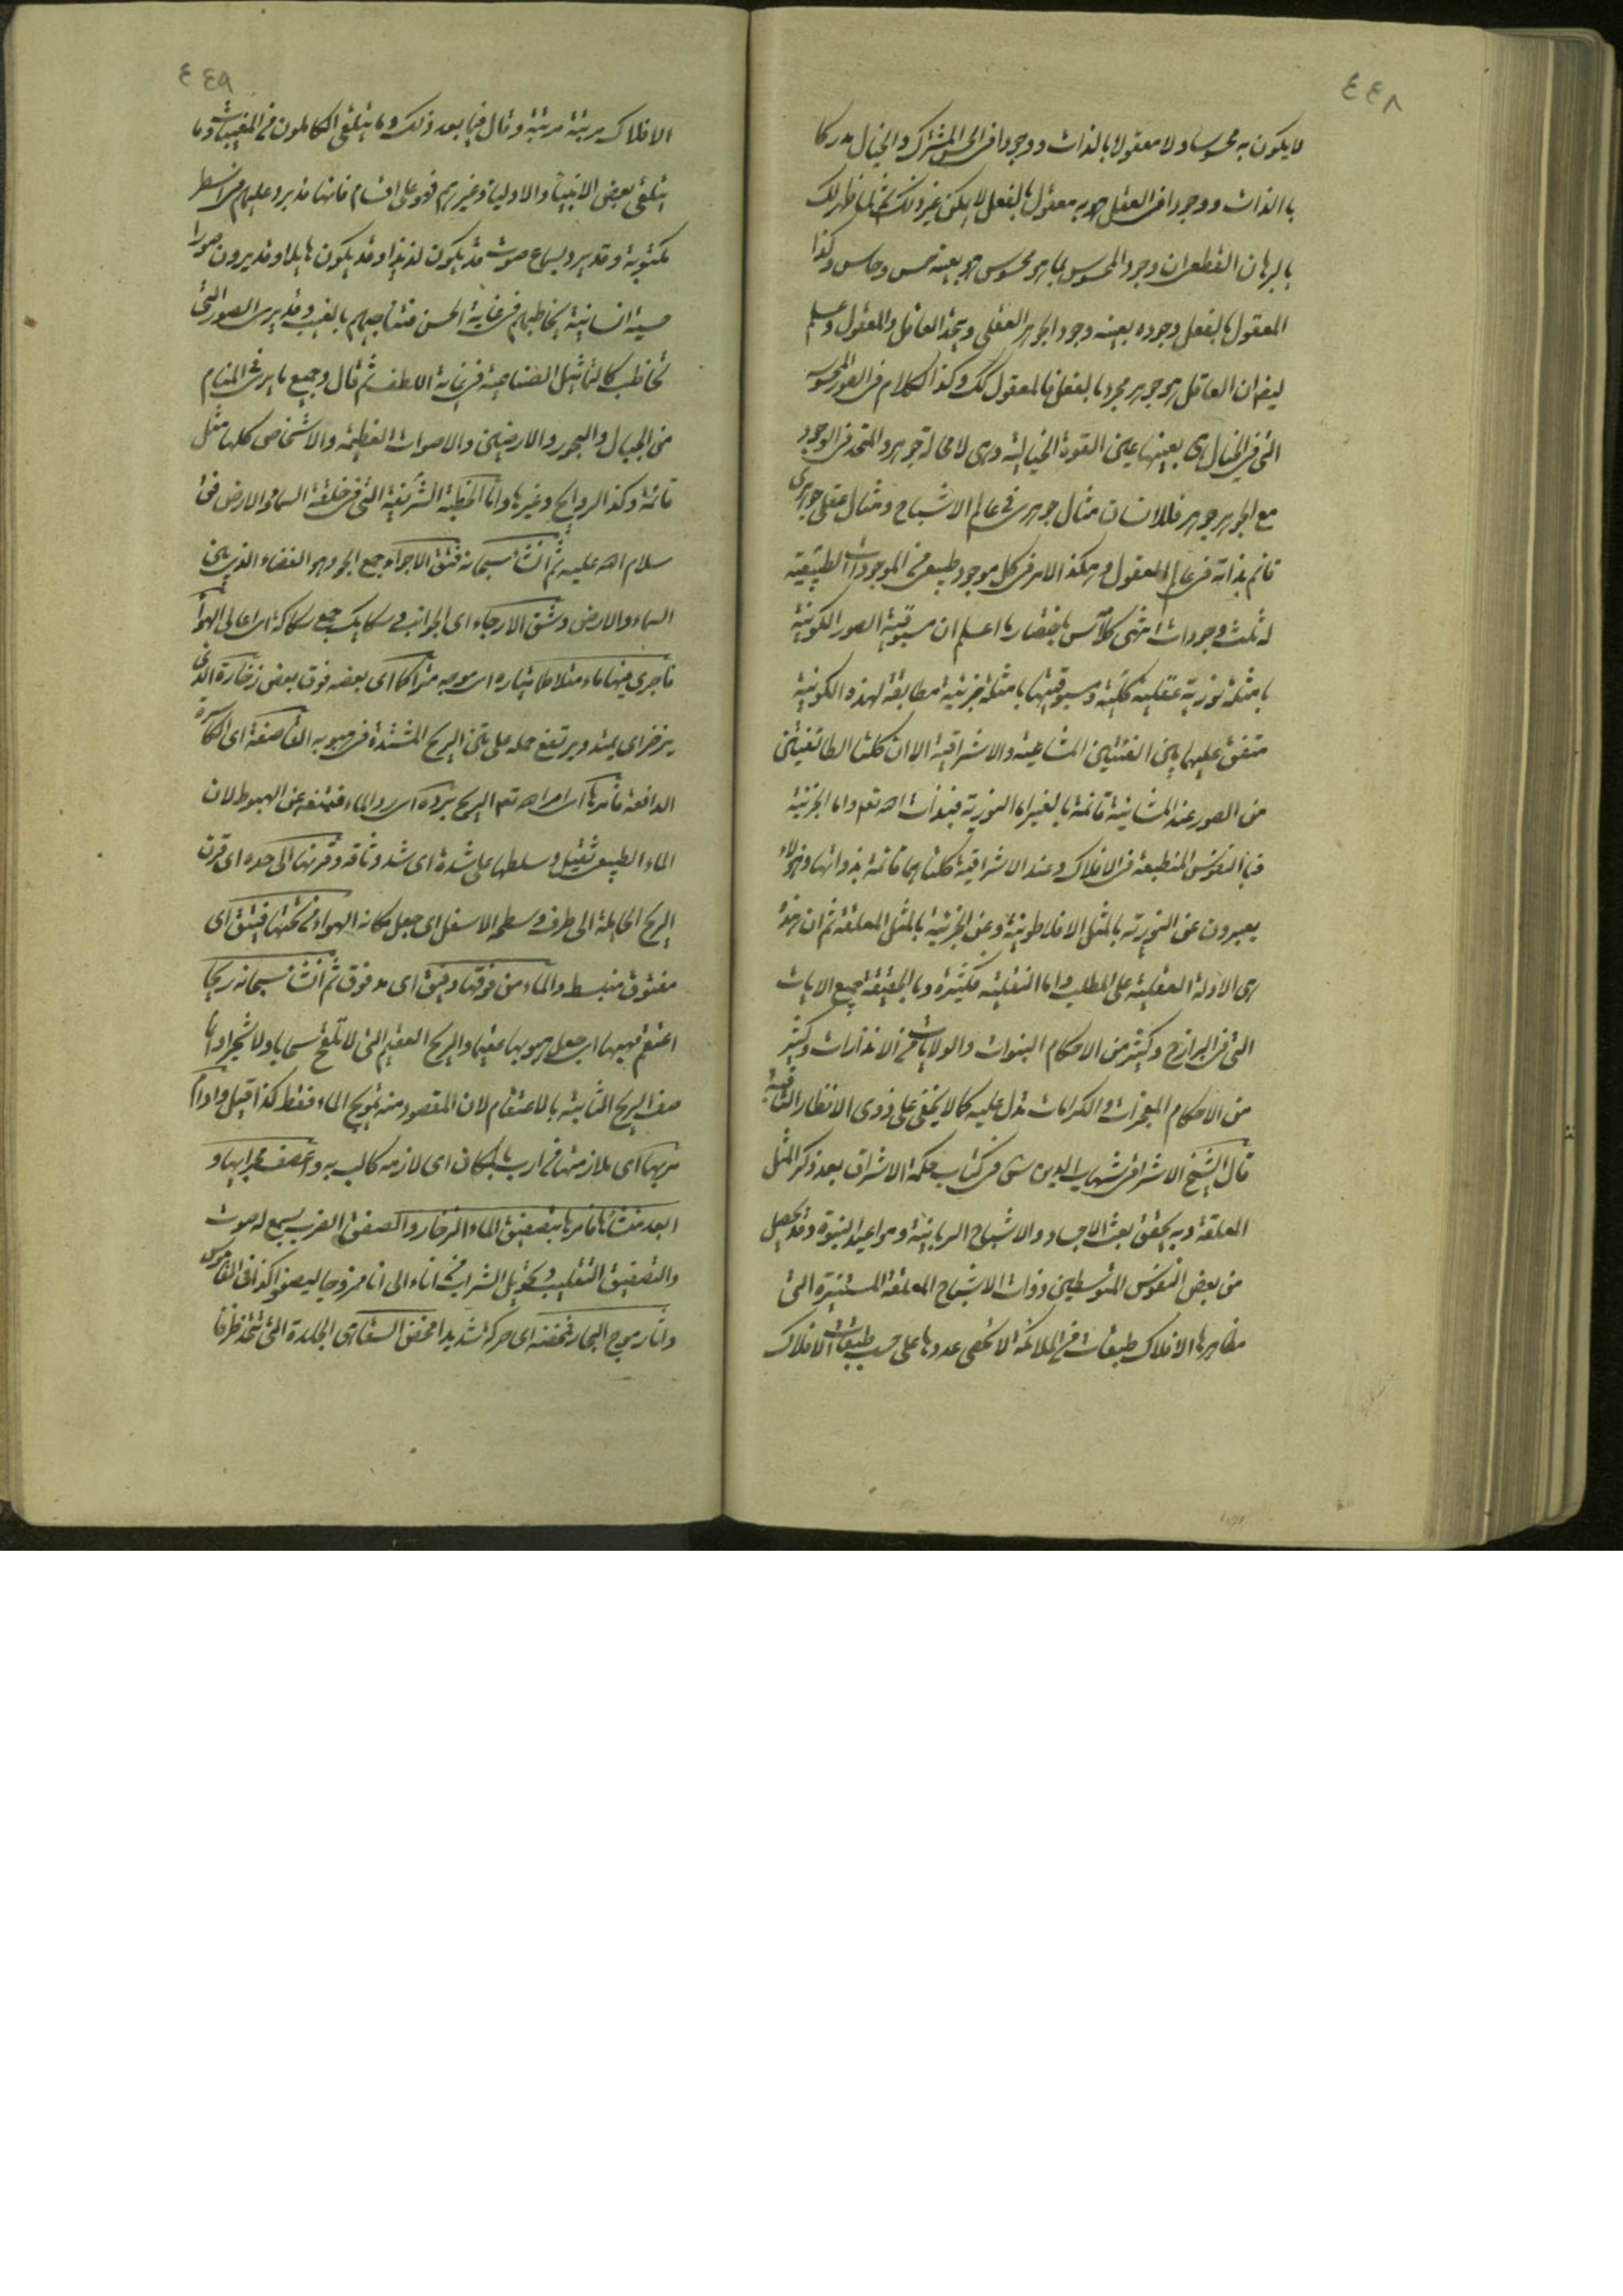 ٤٤٨
لا يكون به محسوسا ولا معقولا بالذات ووجودا فى الحس المشترك والخيال مدركا
بالذات ووجودا فى العقل هو به معقول بالفعل لا يمكن غير ذلك
بالبرهان القطعى ان وجود المحسوس بما هو محسوس هو بعينه حس وحاس وكذا
المعقول بالفعل وجوده بعينه وجود الجوهر العقلى ويتحد العاقل والمعقول وعلم
ايضا ان العاقل هو جوهر مجرد بالفعل فالمعقول كك وكذا الكلام فى الصور المحسوسه
التى فى الخيال هى بعينها عين القوة الخيالية وهى لا محالة جوهر والمتحد فى الوجود
مع الجوهر جوهر فللانسان مثال جوهرى فى عالم الاشباح ومثال عقلى جوهرى
قائم بذاته فى عالم المعقول وهكذا الامر فى كل موجود طبيعى من الموجودات الطبيعيه
له ثلث وجودات انتهى كلامه باختصارها اعلم ان مسبوقية الصور الكونية
بامثلة نورية عقلية كلية ومسبوقيتها بامثلة جزئية مطابقة لهذه الكونية
متفق عليها بين الفئتين المشائية والاشراقية الا ان كلتا الطائفيتين
من الصور عند المشائية قائمة بالغير اما النورية فبذات الله تعم واما الجزئية
فبالنفوس المنطبعة فى الافلاك وعند الاشراقية كلتاهما قائمة بذواتها وهؤلاء
يعبرون عن النورية بالمثل الافلاطونية وعن الجزئية بالمثل المعلقة ثم ان هذه
هى الادلة العقلية على المطلب واما النقلية فكثيرة وبالحقيقة جميع الايات
التى فى البرازخ وكثير من الاحكام النبوات والولايات من الانذارات وكثير
من الاحكام المعجزات والكرامات تدل عليه كما لا يخفى على ذوى الانظار الثاقبة
قال الشيخ الاشراقى شهاب الدين س فى كتاب حكمة الاشراق بعد ذكر المثل
المعلقة وبه يحقق بعث الاجساد والاشباح الربانية ومواعيد النبوة وقد يحصل
من بعض النفوس المتوسطين ذوات الاشباح المعلقة المستنيرة التى
مظاهرها الافلاك طبقات من الملائكة لا تحصى عددها على حسب طبقات الافلاك
٤٤٩
الافلاك مرتبة مرتبة وقال فيما بعد ذلك وما يتلقى الكاملون من المغيبات وما
يتلقى بعض الانبياء والاولياء وغيرهم فهو على اقسام فانها قد يرد عليهم فى اسطر
مكتوبة وقد يرد بسماع صوت قد يكون لذيذا وقد يكون هايلا وقد يرون صورا
حسية انسانية يخاطبهم فى غاية الحسن فتناجيهم بالغيب وقد يرى الصور التى
تخاطب كالتماثيل الصناعية فى غاية اللطف ثم قال وجميع ما يرى فى المنام
من الجبال والبحور والارضين والاصوات العظيمة والاشخاص كلها مثل
قائمة وكذا الروايح وغيرها واما الخطبة الشريفة التى فى خلقة السماء والارض فى
سلام الله عليه ثم انشأ سبحانه فتق الاجواء جمع الجو وهو الفضاء الذى بين
السماء والارض وشق الارجاء اى الجوانب وسكايك جمع سكاكة اى اعالى الهواء
فاجرى فيها ماء متلاطما تياره اى موجه متراكما اى بعضه فوق بعض زخاره الذى
يزخر اى يمتد ويرتفع حمله على متن الريح المشتدة فى هبوبه القاصفة اى الكاسرة
الدافعة فامرها اى امر الله تعم الريح برده اى رد الماء فيمنعه عن الهبوط لان
الماء الطبيعى ثقيل وسلطها على شده اى شد وثاقه وقرنها الى حده اى قرن
الريح الحاملة الى طرف وسطحه الاسفل اى جعل مكانه الهواء من تحتها فتيق اى
مفتوق منبسط والماء من فوقها دفيق اى مدفوق ثم انشأ سبحانه ريحا
اعتقم مهبها اى جعل هبوبها عقيما والريح العقيم التى لا تلقح سحابا ولا شجرا وانما
وصف الريح الثانية بالاعتقام لان المقصود منه تمويج الماء فقط كذا قيل وادام
مربها اى ملازمتها من ارب بالمكان اى لازمه كالب به واعصف مجراها و
ابعد منشاها فامرها بتصفيق الماء الزخار والصفق الضرب يسمع له صوت
والتصفيق التقليب وتحويل الشراب من اناء الى اناء ممزوجا ليصفو كذا فى القاموس
واثار موج البحار فمخضته اى حركة شديدا مخض السقا هى الجلدة التى تتخذ ظرفا